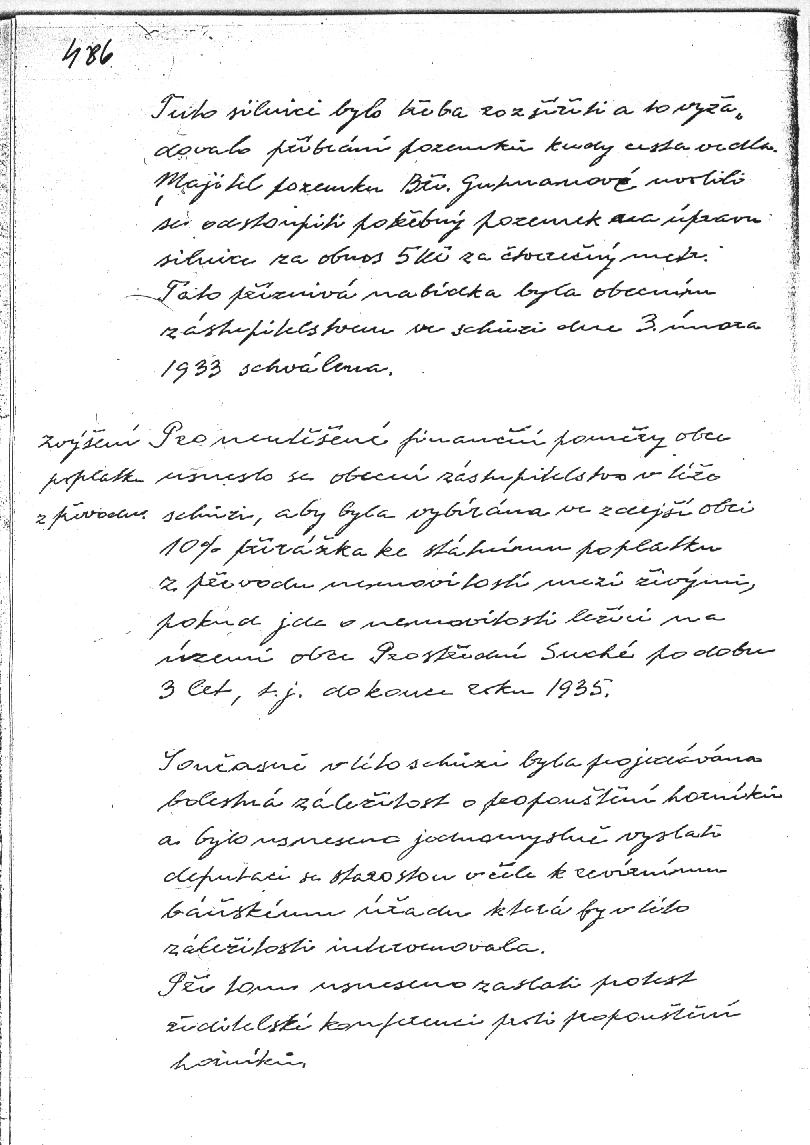 486
Tuto silnici bylo třeba rozšířiti a to vyža„
dovalo přibrání pozemků kudy cesta vedla.
Majitel pozemku Bři. Gutmanové uvolili
se odstoupiti potřebný pozemek na úpravu
silnice za obnos 5 Kč za čtverečný metr.
Tato příznivá nabídka byla obecním
zastupitelstvem ve schůzi dne 3. února
1933 schválena.
Zvýšení
poplatku
z převodu.
Pro neutěšené finanční poměry obce
usneslo se obecní zástupitelstvo v téže
schůzi, aby byla vybírána ve zdejší obci
10% přirážka ke státnímu poplatku
z převodu nemovitostí mezi živými,
pokud jde o nemovitosti ležící na
území obce Prostřední Suché po dobu
3 let, t.j. do konce roku 1935.
Současně v této schůzi byla projednávána
bolestná záležitost o propouštění horníků
a bylo usneseno jednomyslně vyslati
deputaci se starostou v čele k revírnímu
báňskému úřadu která by v této
záležitosti intervenovala.
Při tom usneseno zaslati protest
ředitelské konferenci proti propouštění
horníků.